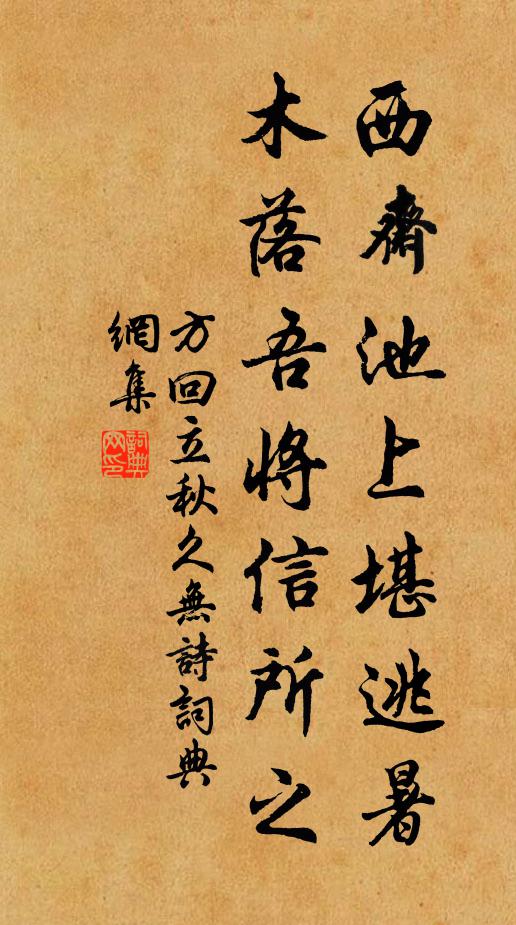 西齋池上堪逃暑
木落吾將信所之
方回立秋久無詩詞典
網集
詞典
网印